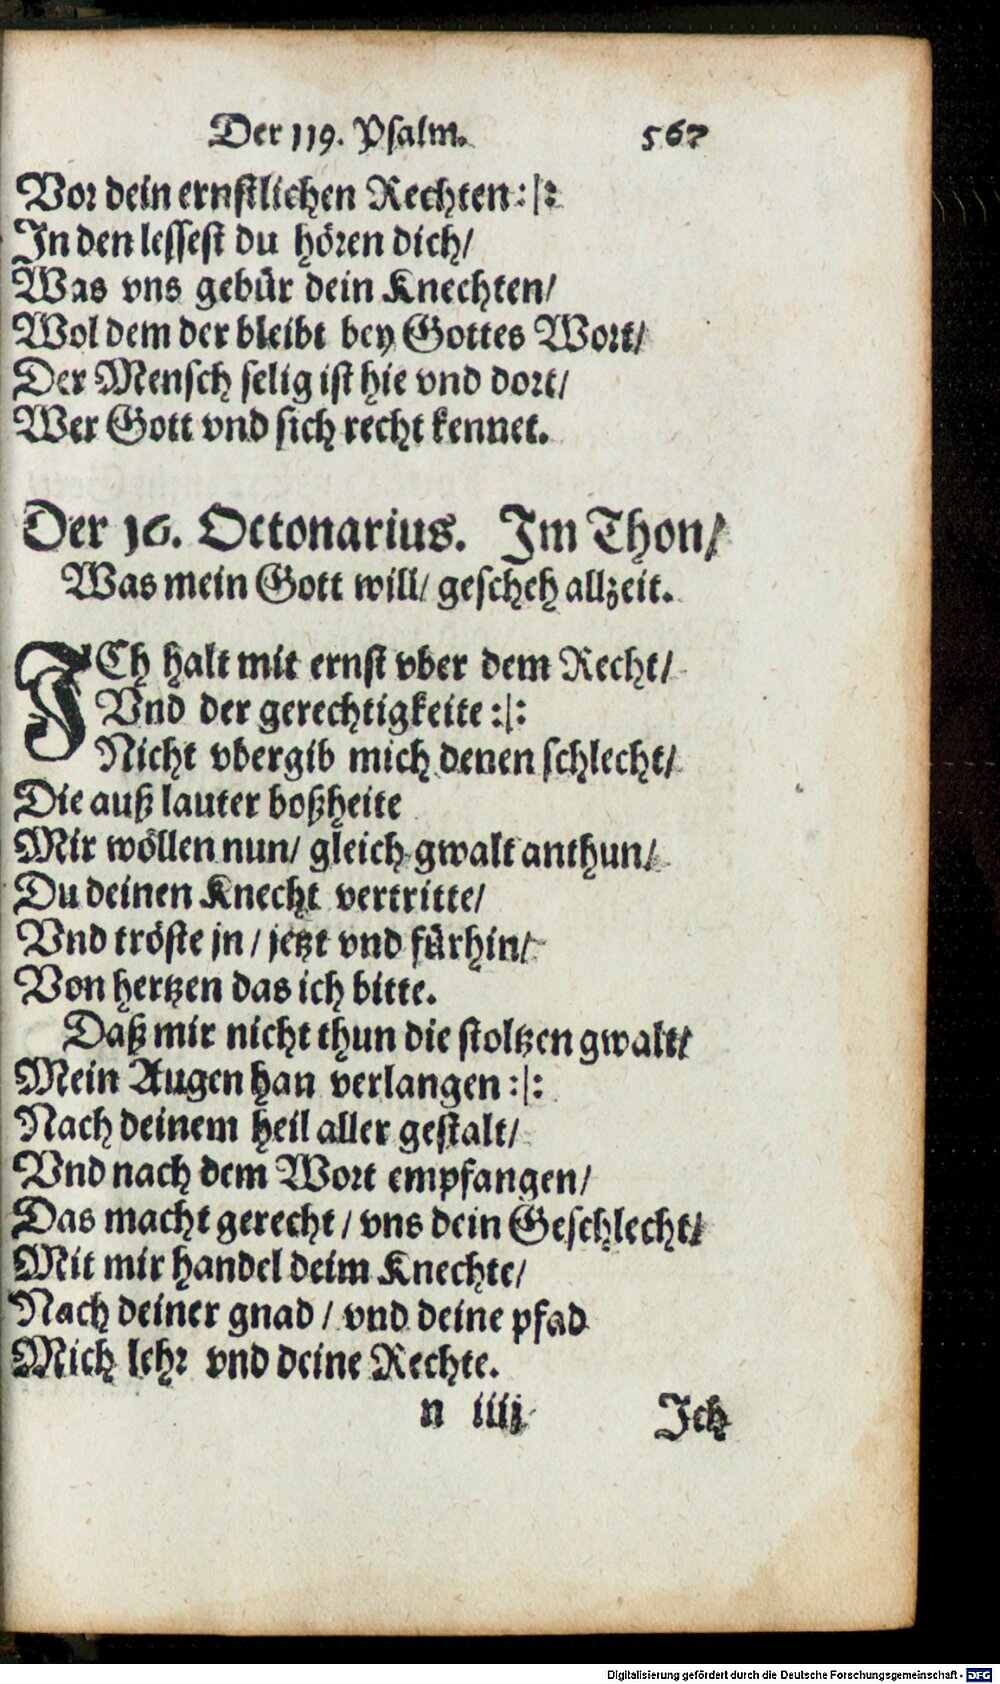 Der 119. Psalm. 567
Vor dein ernstlichen Rechten :|:
In den lessest du hören dich/
Was vns gebür dein Knechten/
Wol dem der bleibt bey Gottes Wort/
Der Mensch selig ist hie vnd dort/
Wer Gott vnd sich recht kennet.
Der 16. Octonarius. Im Thon/
Was mein Gott will/ gescheh allzeit.
ICh halt mit ernst vber dem Recht/
Vnd der gerechtigkeite :|:
Nicht vbergib mich denen schlecht/
Die auß lauter boßheite
Mir wöllen nun/ gleich gwalt anthun/
Du deinen Knecht vertritte/
Vnd tröste jn / jetzt vnd fürhin/
Von hertzen das ich bitte.
Daß mir nicht thun die stoltzen gwalt/
Mein Augen han verlangen :|:
Nach deinem heil aller gestalt/
Vnd nach dem Wort empfangen/
Das macht gerecht / vns dein Geschlecht/
Mit mir handel deim Knechte/
Nach deiner gnad / vnd deine pfad
Mich lehr vnd deine Rechte.
n iiij Ich
Digitalisierung gefördert durch die Deutsche Forschungsgemeinschaft - DFG